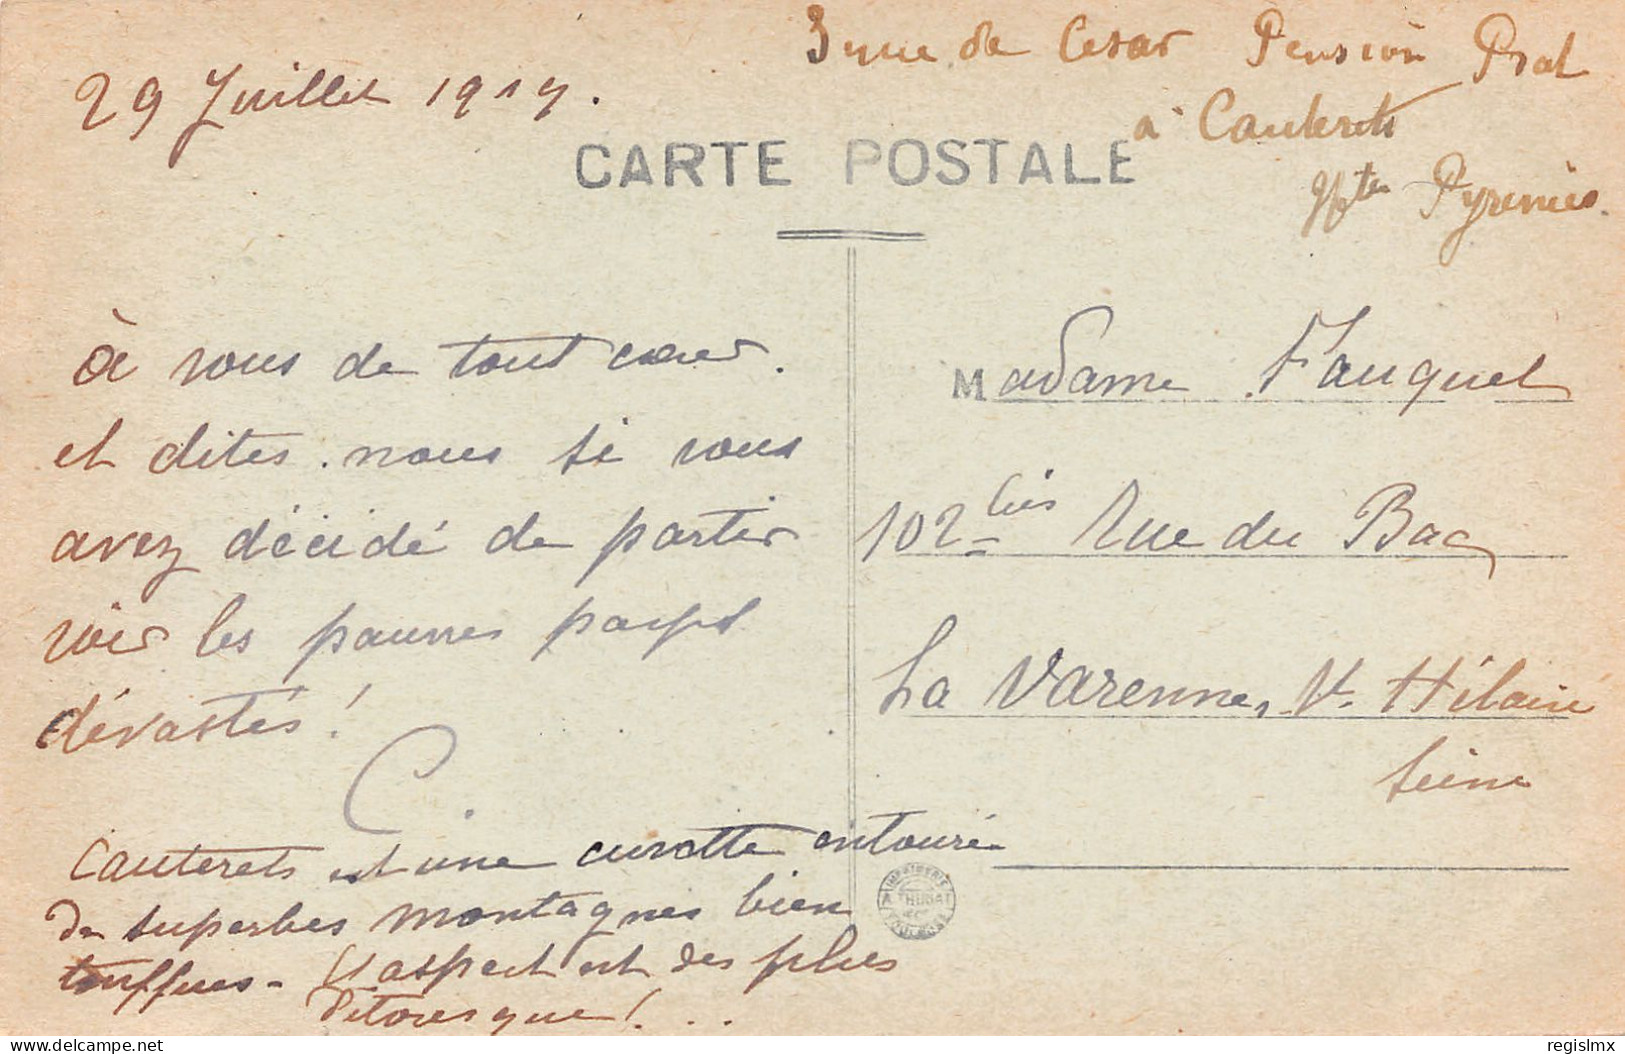 3 rue de Cesar Pension Prat
à Cauterets
Htes Pyrenées.
29 Juillet 1917.
CARTE POSTALE
à vous de tout cœur.
et dites-nous si vous
avez décidé de partir
voir les pauvres pays
dévastés !
C.
Cauterets est une cuvette entourée
de superbes montagnes bien
touffues - L'aspect est des plus
pitoresque ! ...
Madame Fauquet
102 bis Rue du Bac
La Varenne, St. Hilaire
Seine
IMPRIMERIE
TOULOUSE
delcampe.net
regislmx